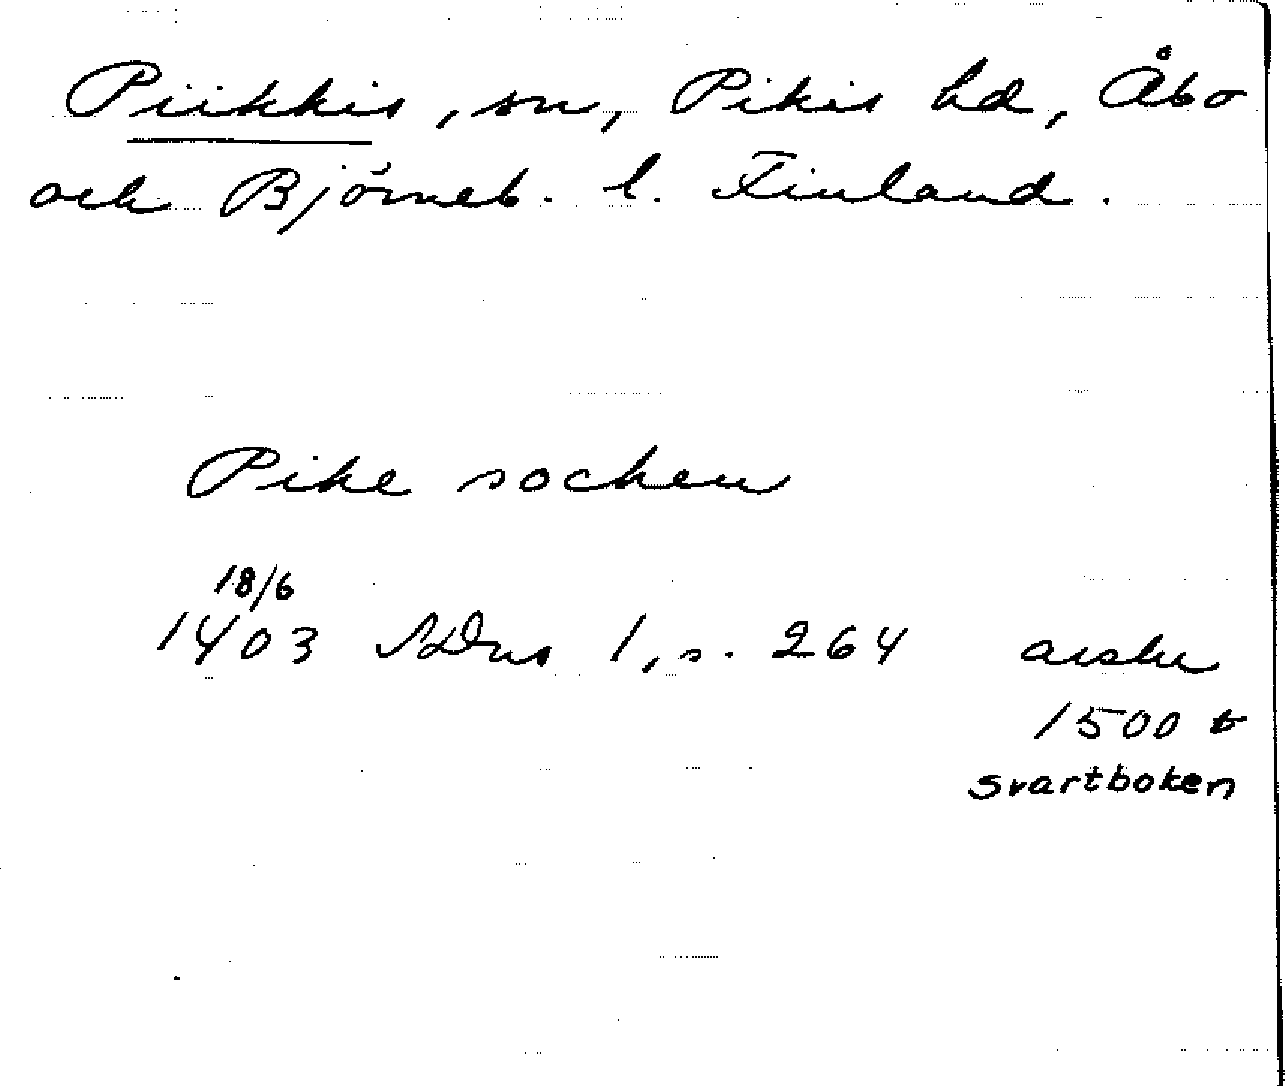 Piikkis, sn, Pikis hd, Åbo
och Björneb. l. Finland.
Pike socken
18/6
1403 SDns 1, s. 264 avskr
1500 t
svartboken